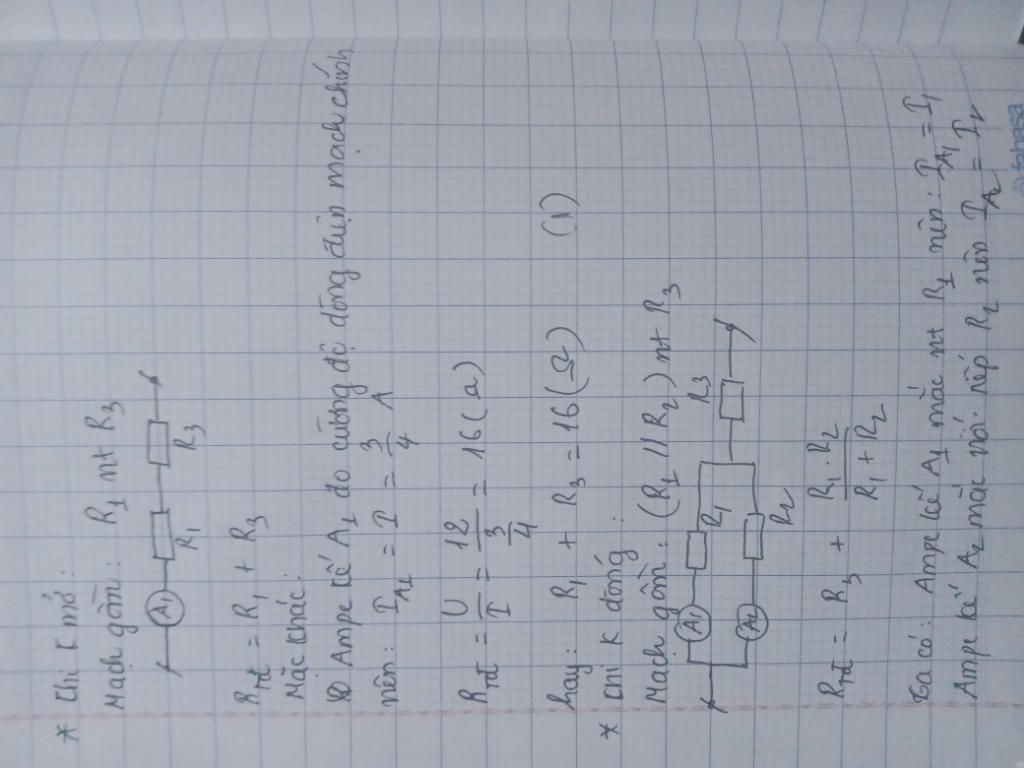 * Khi K mở:
Mạch gồm: R1 nt R3
A1 R1 R3
Rtđ = R1 + R3
Mặc khác:
Ampe kế A1 đo cường độ dòng điện mạch chính
nên: IA1 = I = 3/4 A
Rtđ = U/I = 12/(3/4) = 16 (Ω)
hay: R1 + R3 = 16 (Ω) (1)
* Khi K đóng:
Mạch gồm: (R1 // R2) nt R3
A1 R1 R3
A2 R2
Rtđ = R3 + R1.R2/R1 + R2
Ta có: Ampe kế A1 mắc nt R1 nên: IA1 = I1
Ampe kế A2 mắc nối tiếp R2 nên IA2 = I2